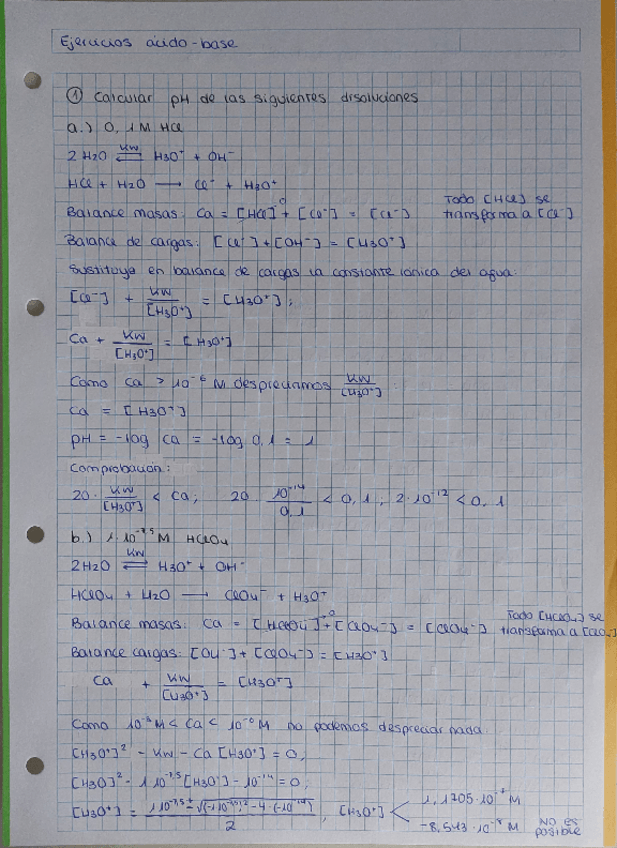 Ejercicios ácido-base
① Calcular pH de las siguientes disoluciones
a.) 0,1M HCl
2 H2O ⇌ (Kw) H3O⁺ + OH⁻
HCl + H2O ⟶ Cl⁻ + H3O⁺
Balance masas: Ca = [HCl]⁰ + [Cl⁻] = [Cl⁻] Todo [HCl] se
transforma a [Cl⁻]
Balance de cargas: [Cl⁻] + [OH⁻] = [H3O⁺]
Sustituye en balance de cargas la constante iónica del agua:
[Cl⁻] + Kw/[H3O⁺] = [H3O⁺];
Ca + Kw/[H3O⁺] = [H3O⁺]
Como Ca > 10⁻⁶ M despreciamos Kw/[H3O⁺]
Ca = [H3O⁺]
pH = -log Ca = -log 0,1 = 1
Comprobación:
20 · Kw/[H3O⁺] < Ca; 20 · 10⁻¹⁴/0,1 < 0,1, 2·10⁻¹² < 0,1
b.) 1·10⁻⁷'⁵ M HClO4
2H2O ⇌ (Kw) H3O⁺ + OH⁻
HClO4 + H2O ⟶ ClO4⁻ + H3O⁺
Balance masas: Ca = [HClO4]⁰ + [ClO4⁻] = [ClO4⁻] Todo [HClO4] se
transforma a [ClO4]
Balance cargas: [OH⁻] + [ClO4⁻] = [H3O⁺]
Ca + Kw/[H3O⁺] = [H3O⁺]
Como 10⁻⁸ M < Ca < 10⁻⁶ M no podemos despreciar nada
[H3O⁺]² - Kw - Ca [H3O⁺] = 0;
[H3O]² - 1 10⁻⁷'⁵ [H3O⁺] - 10⁻¹⁴ = 0;
[H3O⁺] = (1 10⁻⁷'⁵ ± √((-1 10⁻⁷'⁵)² - 4·(-10⁻¹⁴)))/2, [H3O⁺] < 1,1705·10⁻⁷ M
-8,543·10⁻⁸ M NO ES
posible